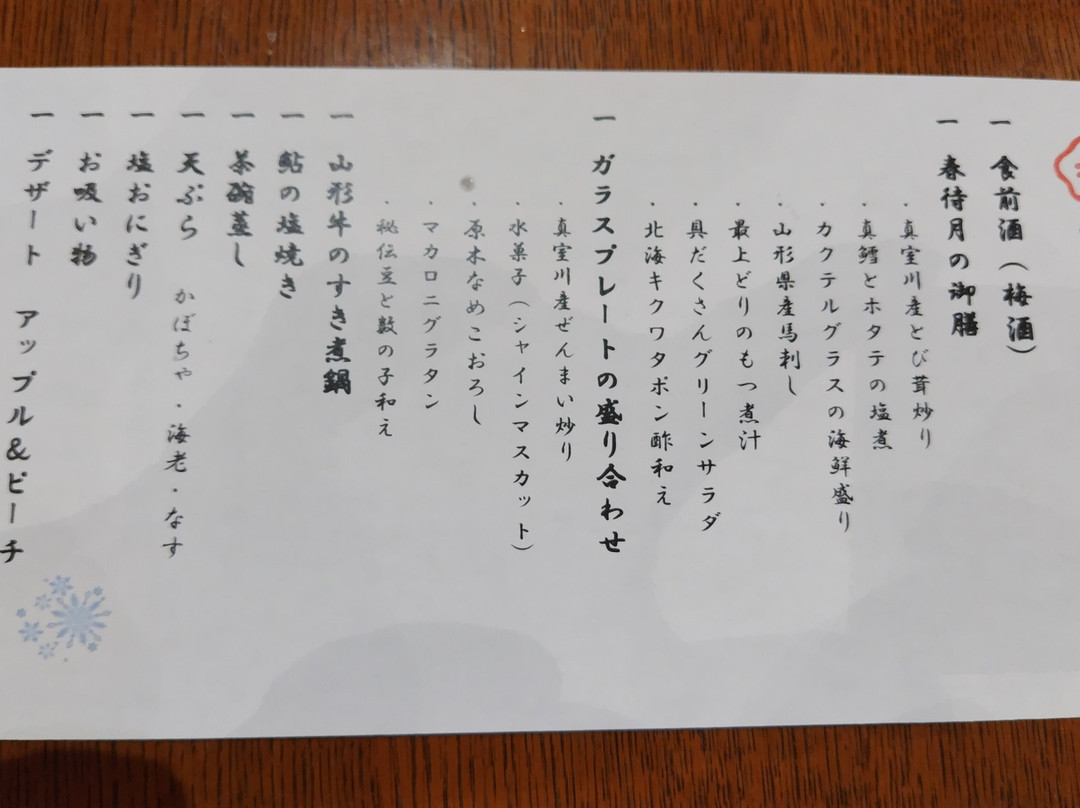 一 食前酒（梅酒）
一 春待月の御膳
・真室川産とび茸炒り
・真鱈とホタテの塩煮
・カクテルグラスの海鮮盛り
・山形県産馬刺し
・最上どりのもつ煮汁
・具だくさんグリーンサラダ
・北海キクワタポン酢和え
一 ガラスプレートの盛り合わせ
・真室川産ぜんまい炒り
・水菓子（シャインマスカット）
・原木なめこおろし
・マカロニグラタン
・秘伝豆と数の子和え
一 山形牛のすき煮鍋
一 鮎の塩焼き
一 茶碗蒸し
一 天ぷら かぼちゃ・海老・なす
一 塩おにぎり
一 お吸い物
一 デザート アップル&ピーチ